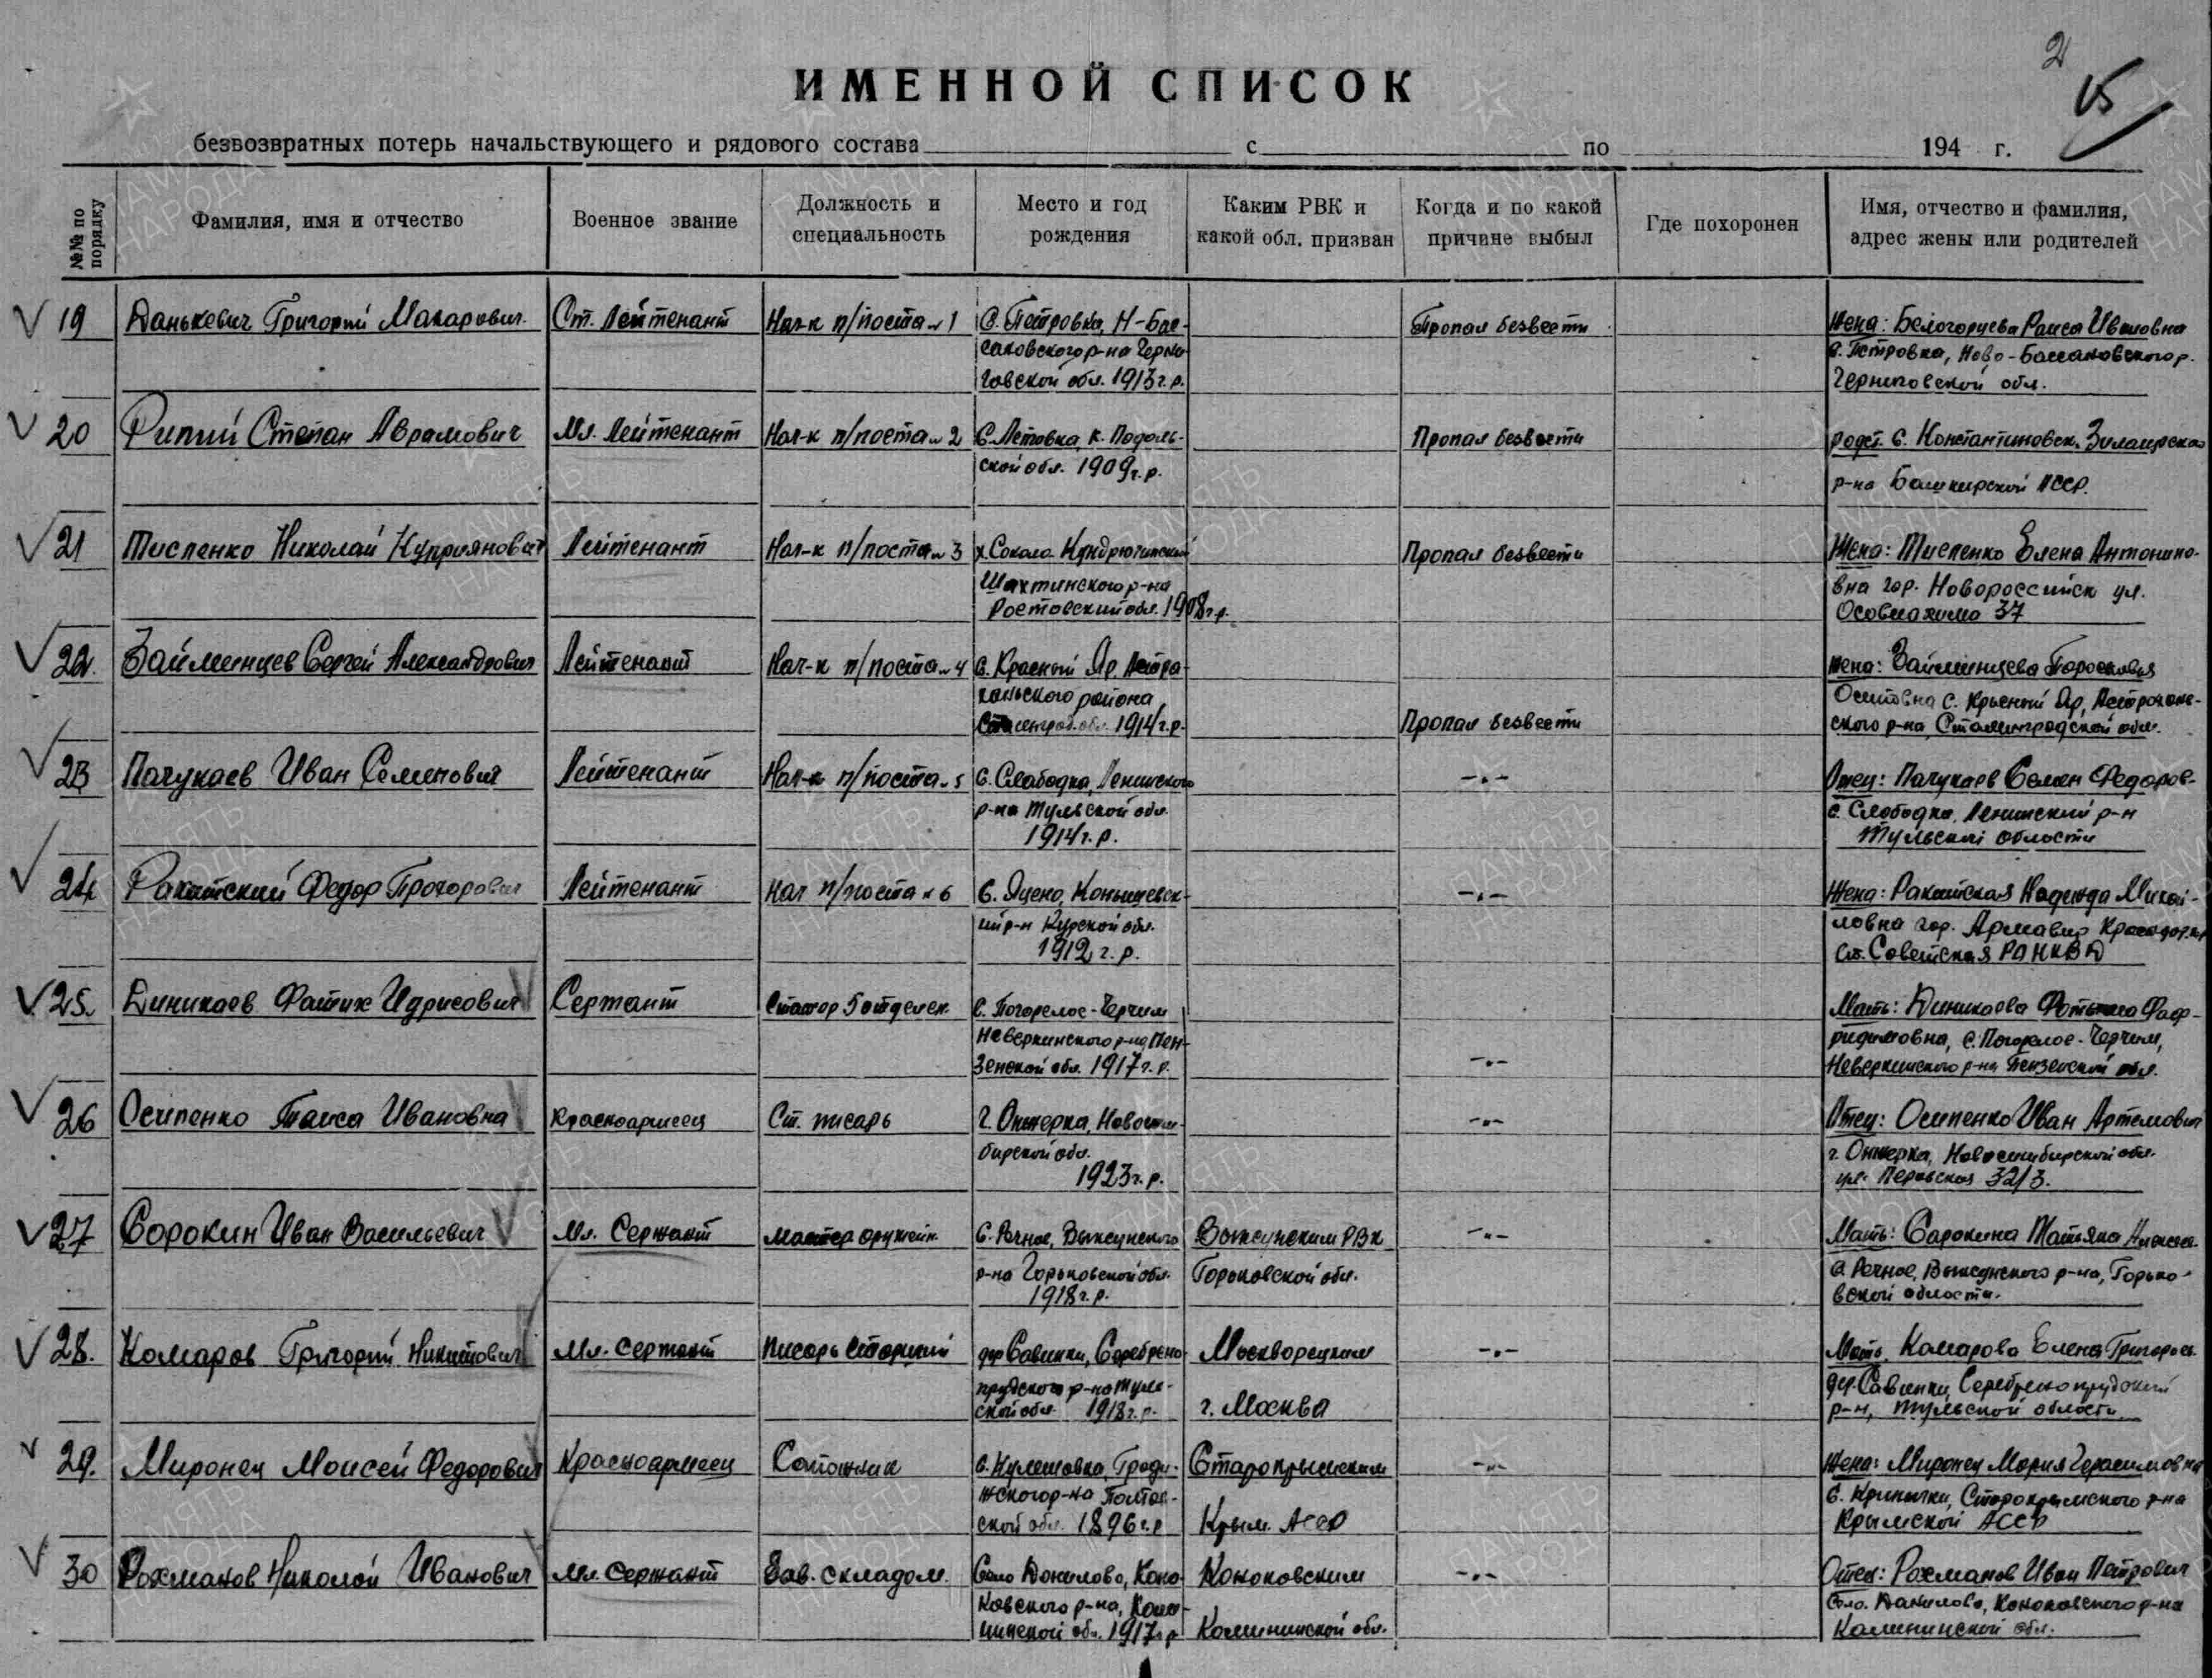 2
15
ИМЕННОЙ СПИСОК
безвозвратных потерь начальствующего и рядового состава с по 194 г.
№№ по порядку
Фамилия, имя и отчество
Военное звание
Должность и специальность
Место и год рождения
Каким РВК и какой обл. призван
Когда и по какой причине выбыл
Где похоронен
Имя, отчество и фамилия, адрес жены или родителей
19 Данькевич Григорий Макарович Ст. Лейтенант Нач-к п/поста № 1 С. Петровка, Н-Бас- Пропал безвести Жена: Белогорцева Раиса Ивановна
саковского р-на Черни- С. Петровка, Ново-Басановского р.
говской обл. 1913 г.р. Черниговской обл.
20 Рипий Степан Аврамович Мл. Лейтенант Нач-к п/поста № 2 С. Летовка К. Подоль- Пропал безвести родст. С. Константиновск. Зилаирского
ской обл. 1909 г.р. р-на Башкирской АССР.
21 Тисленко Николай Куприянович Лейтенант Нач-к п/поста № 3 х. Соколо-Кундрюченский Пропал безвести Жена: Тисленко Елена Антонино-
Шахтинского р-на вна гор. Новороссийск ул.
Ростовский обл. 1908 г.р. Осовиахима 37
22. Займенцев Сергей Александрович Лейтенант Нач-к п/поста № 4 С. Красный Яр, Астра- Жена: Займенцева Парасковья
ханьского района Осиповна С. Красный Яр, Астрахань-
Сталинград. обл. 1914 г.р. Пропал безвести ского р-на, Сталинградской обл.
23 Пачукаев Иван Семенович Лейтенант Нач-к п/поста № 5 С. Слободка, Ленинского -"- Отец: Пачукаев Семен Федоров-
р-на Тульской обл. С. Слободка, Ленинский р-н
1914 г.р. Тульской области
24 Ракитский Федор Прохорович Лейтенант Нач п/поста № 6 С. Яцено, Конышевск- -"- Жена: Ракитская Надежда Михай-
ий р-н Курской обл. ловна гор. Армавир
1912 г.р. Ст. Советская РО НКВД
25. Диникаев Фатих Идрисович Сержант 5 отделен. С. Погорелое-Чирчим Мать: Диникаева
Неверкинского р-на Пен- С. Погорелое-Чирчим,
зенской обл. 1917 г.р. -"- Неверкинского р-на Пензенской обл.
26 Осипенко Таиса Ивановна Красноармеец Ст. писарь г. Анжерка, Новоси- -"- Отец: Осипенко Иван Артемович
бирской обл. г. Анжерка, Новосибирской обл.
1923 г.р. ул. Перовская 32/3.
27 Сорокин Иван Васильевич Мл. Сержант мастер оружейн. С. Речное, Выксунского Выксунским РВК -"- Мать: Сорокина Татьяна Алексее.
р-на Горьковской обл. Горьковской обл. С. Речное, Выксунского р-на, Горько-
1918 г.р. вской области.
28. Комаров Григорий Никитович Мл. Сержант Писарь старший дер Савинки, Серебряно- Москворецким -"- Мать. Комарова Елена Григорьев.
прудского р-на Туль- дер. Савинки, Серебрянопрудский
ской обл. 1918 г.р. г. Москва р-н, Тульской области
29. Миронец Моисей Федорович Красноармеец Сапожник С. Кулешовка, Гради- Старокрымским -"- Жена: Миронец Мария Герасимовна
жского р-на Полтав- С. Кринички, Старокрымского р-на
ской обл. 1896 г.р. Крым. АССР Крымской АССР
30 Рохманов Николай Иванович Мл. Сержант Зав. складом. Село Данилово, Коно- Конаковским -"- Отец: Рохманов Иван Петрович
ковского р-на, Кали- Село. Данилово, Конаковского р-на
нинской обл. 1917 г.р. Калининской обл. Калининской обл.
ПАМЯТЬ НАРОДА